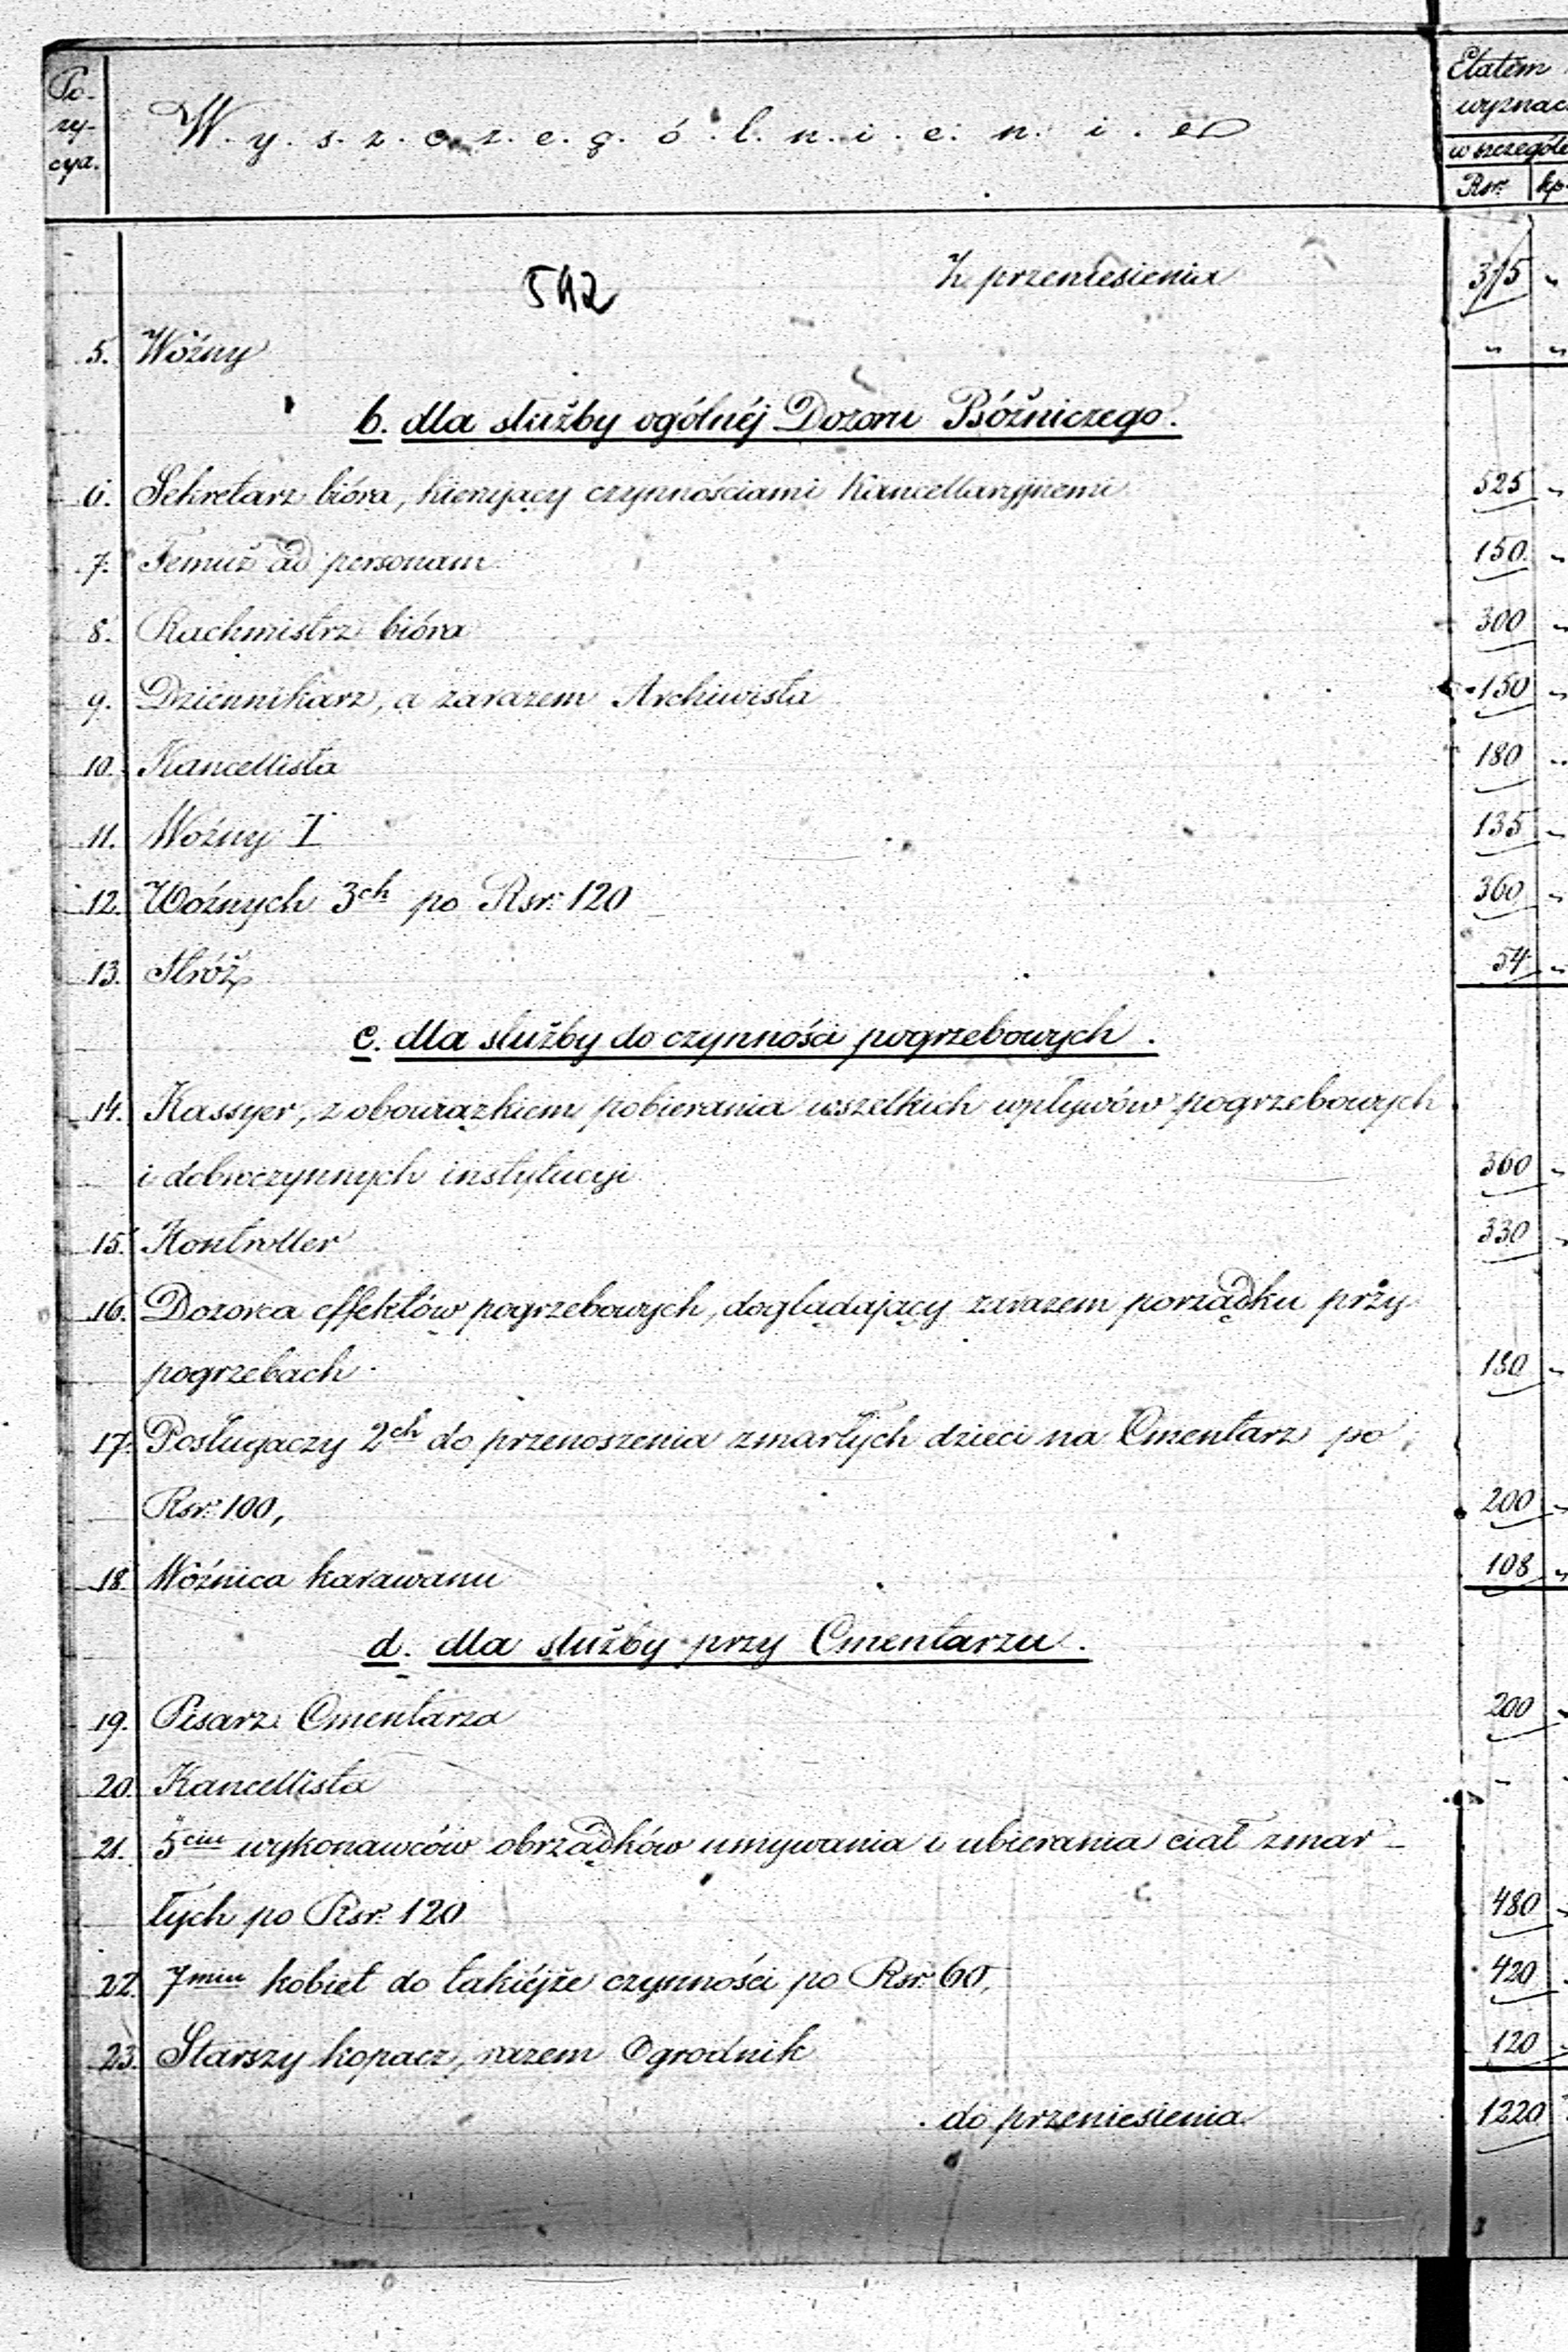 Pozycya.
Wyszczególnienie
Etatem
wyznac
w szczególe
Rsr. kp.
542
Z przeniesienia 315 "
5. Woźny " "
b. dla służby ogólnéj Dozoru Bóźniczego.
6. Sekretarz bióra, kierujący czynnościami Kancellaryjnemi 525 "
7. Temuż ad personam 150 "
8. Rachmistrz bióra 300 "
9. Dziennikarz, a zarazem Archiwista 150 "
10. Kancellista 180 "
11. Woźny I 135 "
12. Woźnych 3ch po Rsr. 120 360 "
13. Stróż 54 "
c. dla służby do czynności pogrzebowych.
14. Kassyer, z obowiązkiem pobierania wszelkich wpływów pogrzebowych
i dobroczynnych instytucyi 360 "
15. Kontroller 330 "
16. Dozorca effektów pogrzebowych, doglądający zarazem porządku przy
pogrzebach 180 "
17. Posługaczy 2ch do przenoszenia zmarłych dzieci na Cmentarz po
Rsr. 100, 200 "
18. Woźnica karawanu 108 "
d. dla służby przy Cmentarzu.
19. Pisarz Cmentarza 200 "
20. Kancellista "
21. 5ciu wykonawców obrządków umywania i ubierania ciał zmar-
łych po Rsr. 120 480 "
22. 7miu kobiet do takiéjże czynności po Rsr. 60, 420
23. Starszy kopacz, razem Ogrodnik 120 "
do przeniesienia 1220